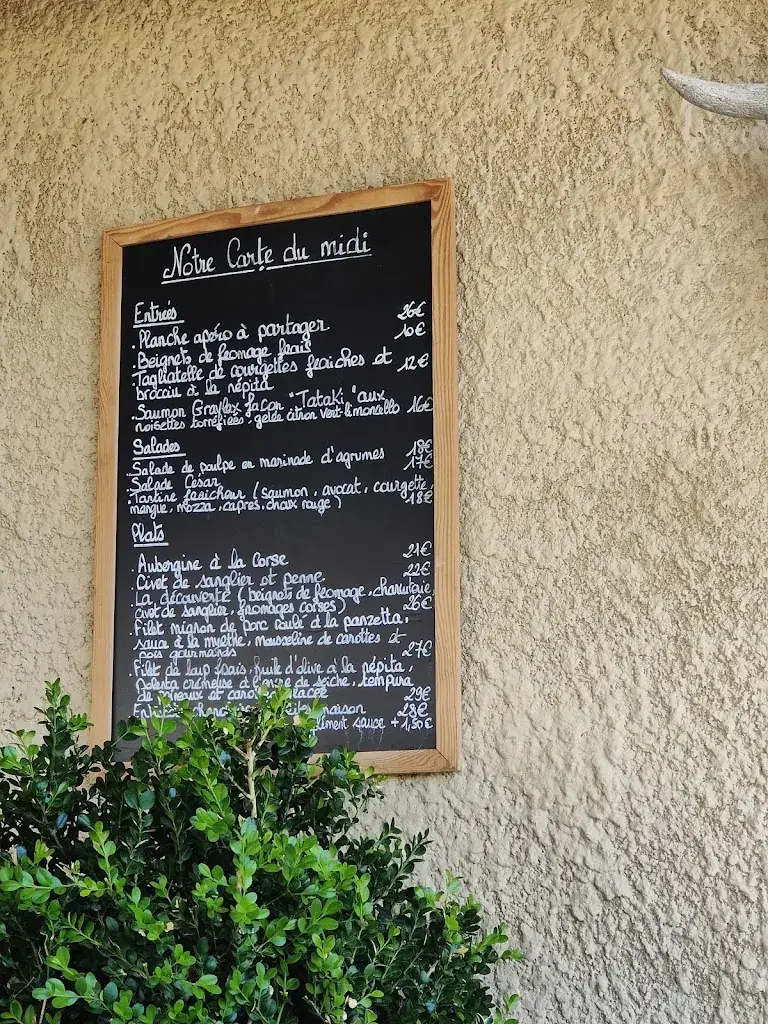 Notre Carte du midi
Entrées
. Planche apéro à partager 26€
. Beignets de fromage frais 10€
. Tagliatelle de courgettes fraiches et
brocciu à la népita 12€
. Saumon Gravlax façon "Tataki" aux
noisettes torréfiées, gelée citron vert-limoncello 16€
Salades
. Salade de poulpe en marinade d'agrumes 18€
. Salade César 17€
. Tartine fraicheur (saumon, avocat, courgette,
mangue, mozza, capres, choux rouge) 18€
Plats
. Aubergine à la Corse 21€
. Civet de sanglier et penne 22€
. La découverte (beignets de fromage, charcuterie,
civet de sanglier, fromages corses) 26€
. Filet mignon de porc roulé à la panzetta,
sauce à la myrthe, mousseline de carottes et
pois gourmands 27€
. Filet de loup frais, huile d'olive à la népita,
Polenta crémeuse à l'encre de seiche, tempura
de et 29€
maison 28€
sauce +1,50€